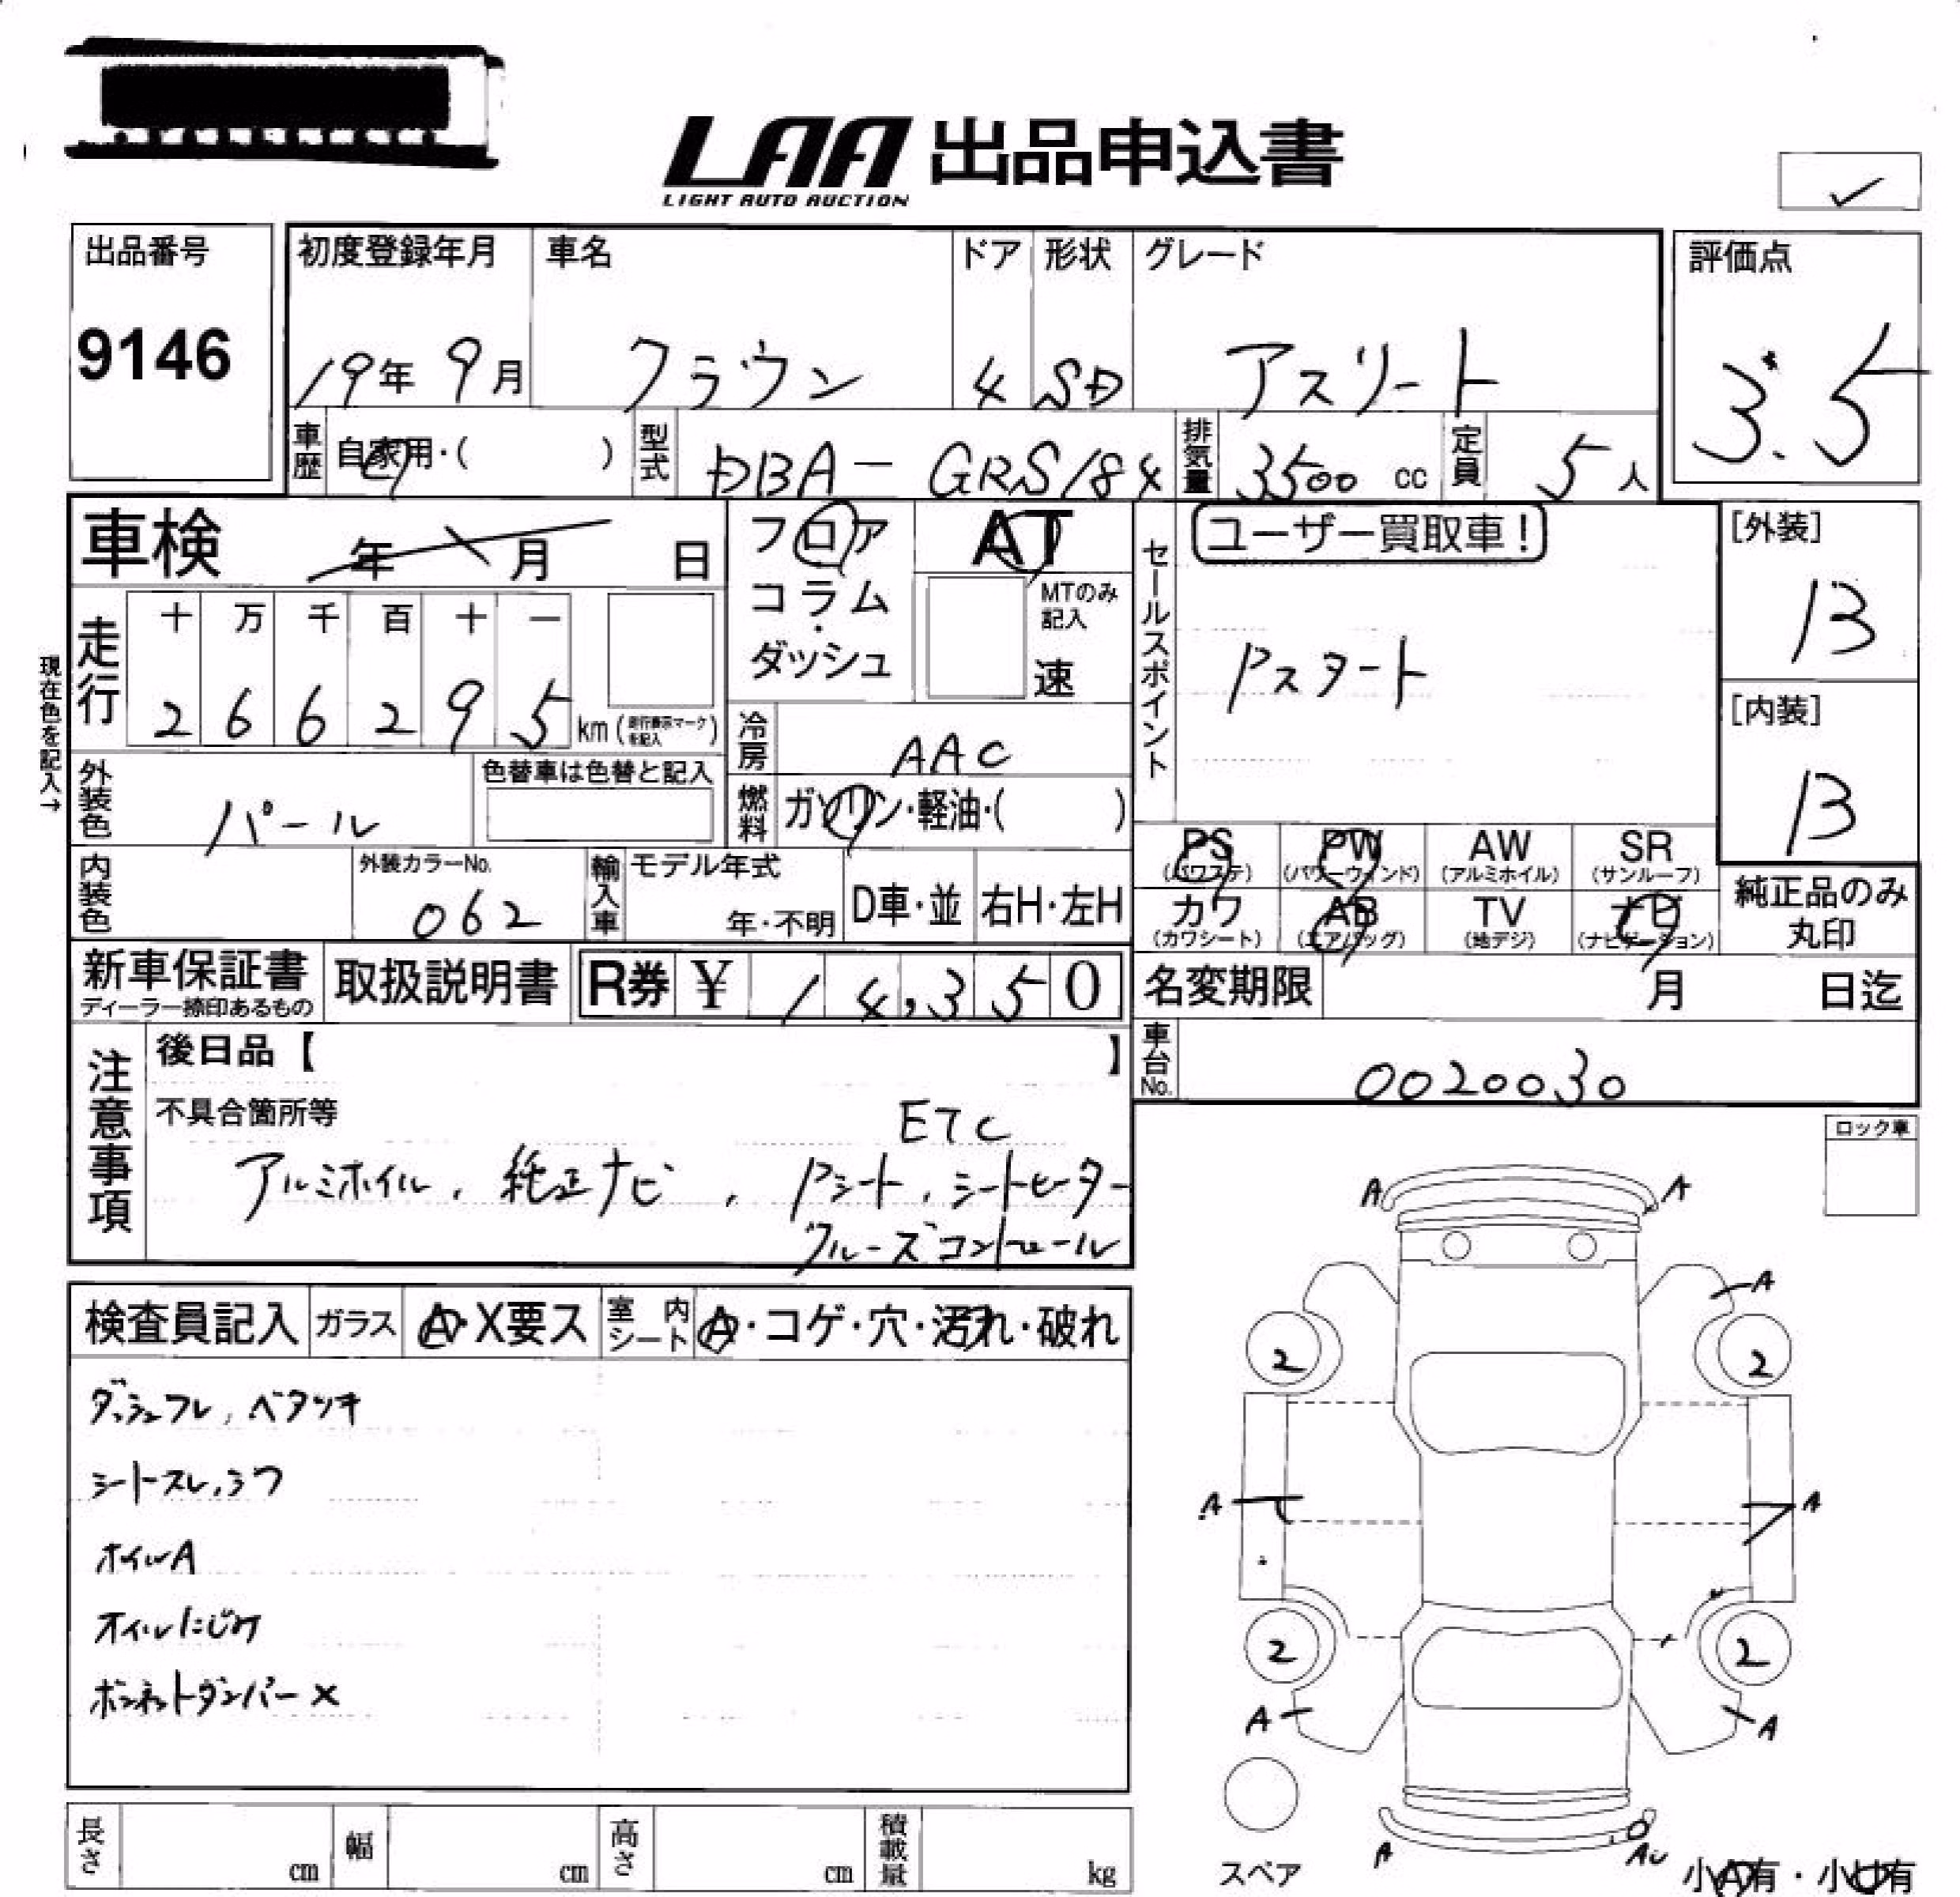 LAA 出品申込書
LIGHT AUTO AUCTION
出品番号
9146
初度登録年月 車名 ドア 形状 グレード
19年 9月 クラウン 4 SD アスリート
評価点
3.5
車歴 自家用・( ) 型式 DBA-GRS184 排気量 3500 cc 定員 5人
車検 年 月 日
フロア
コラム・
ダッシュ
AT
MTのみ
記入
速
セールスポイント
ユーザー買取車!
Pスタート
[外装]
B
[内装]
B
現在色を記入→
走行
十 万 千 百 十 一
2 6 6 2 9 5 km (走行表示マークを記入)
冷房 AAC
外装色 パール
色替車は色替と記入
燃料 ガソリン・軽油・( )
内装色
外装カラーNo.
062
輸入車 モデル年式
年・不明 D車・並 右H・左H
PS
(パワステ)
PW
(パワーウインド)
AW
(アルミホイル)
SR
(サンルーフ)
カワ
(カワシート)
AB
(エアバッグ)
TV
(地デジ)
ナビ
(ナビゲーション)
純正品のみ
丸印
新車保証書
ディーラー捺印あるもの
取扱説明書
R券 ¥ 14,350
名変期限 月 日迄
車台No. 0020030
注意事項
後日品【 】
不具合箇所等
ETC
アルミホイル, 純正ナビ, Pシート, シートヒーター
クルーズコントロール
ロック車
検査員記入 ガラス A・X要ス 室内シート A・コゲ・穴・汚れ・破れ
ダッシュフレ, ベタツキ
シートスレ, シワ
ホイルA
オイルにじみ
ボンネットダンパー×
A A
A
2 2
A A
2 2
A A
A AU
スペア
小A有・小U有
長さ cm 幅 cm 高さ cm 積載量 kg